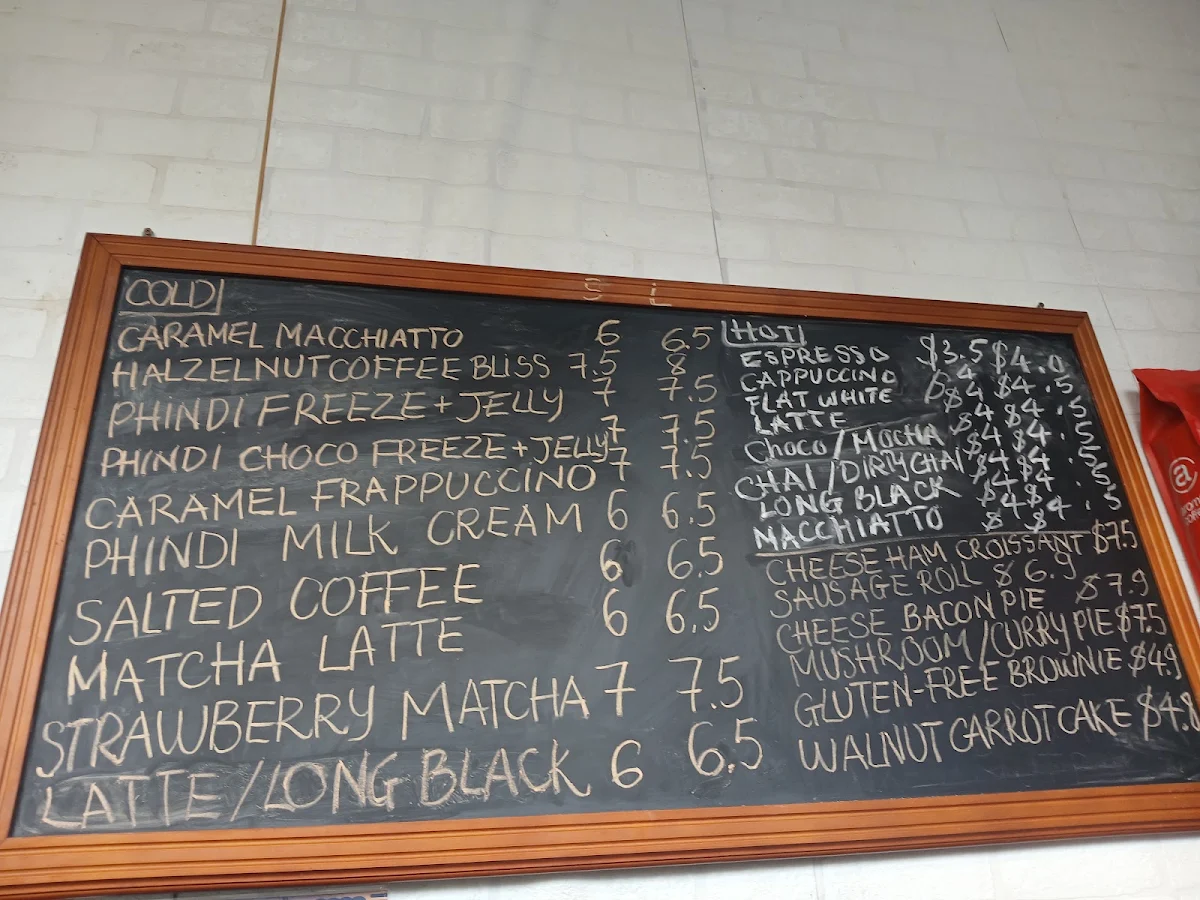 S L
COLD
CARAMEL MACCHIATTO 6 6.5
HALZELNUT COFFEE BLISS 7.5 8
PHINDI FREEZE + JELLY 7 7.5
PHINDI CHOCO FREEZE + JELLY 7 7.5
CARAMEL FRAPPUCCINO 7 7.5
PHINDI MILK CREAM 6 6.5
SALTED COFFEE 6 6.5
MATCHA LATTE 6 6.5
STRAWBERRY MATCHA 7 7.5
LATTE/LONG BLACK 6 6.5
HOT
ESPRESSO $3.5 $4.0
CAPPUCCINO $4 $4.5
FLAT WHITE $4 $4.5
LATTE $4 $4.5
CHOCO/MOCHA $4 $4.5
CHAI/DIRTY CHAI $4 $4.5
LONG BLACK $4 $4.5
MACCHIATTO $ $
CHEESE HAM CROISSANT $7.5
SAUSAGE ROLL $6.9
CHEESE BACON PIE $7.9
MUSHROOM/CURRY PIE $7.5
GLUTEN-FREE BROWNIE $4.9
WALNUT CARROT CAKE